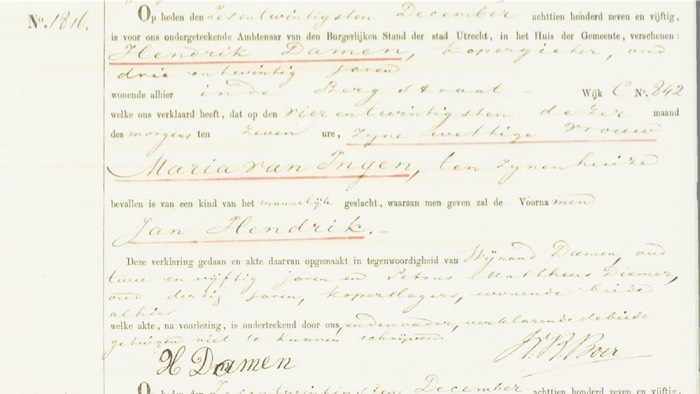 No. 1816.
Op heden den Zesentwintigsten December achttien honderd zeven en vijftig,
is voor ons ondergeteekende Ambtenaar van den Burgerlijken Stand der stad Utrecht, in het Huis der Gemeente, verschenen:
Hendrik Damen, kopergieter, oud
drie en twintig jaren
wonende alhier in de Bergstraat Wijk C No. 842
welke ons verklaard heeft, dat op den vier en twintigsten dezer maand
des morgens ten zeven ure, zyne wettige vrouw
Maria van Ingen, ten zynen huize
bevallen is van een kind van het mannelijke geslacht, waaraan men geven zal de Voornamen
Jan Hendrik.-
Deze verklaring gedaan en akte daarvan opgemaakt in tegenwoordigheid van Wijnand Damen, oud
twee en vijftig jaren en Petrus Mattheus Diemer,
oud dertig jaren, koperslagers, wonende beide
alhier
welke akte, na voorlezing, is onderteekend door ons, en den vader, verklarende de beide
getuigen niet te kunnen schrijven.
H Damen
Boer
Op heden den Zesentwintigsten December achttien honderd zeven en vijftig,